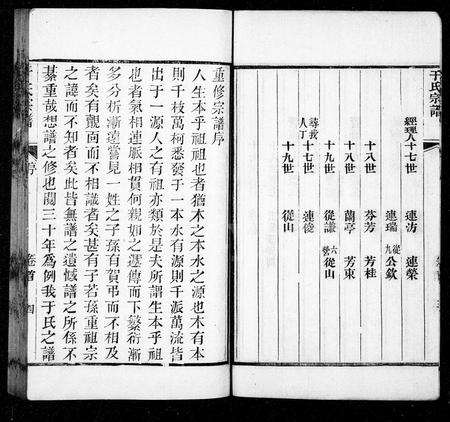 于氏宗譜
經理人十七世 連汸 連榮
連瑞 從九 公欽
十八世 芬芳 芳桂
十八世 蘭亭 芳東
十九世 從謙 從山
尋我人丁 十七世 連俊
十九世 從山
重修宗譜序
人生本乎祖祖也者猶木之本水之源也木有本
則千枝萬柯悉發于一本水有源則千派萬流皆
出于一源人之有祖亦類於是夫所謂生本乎祖
也者氣相連脈相貫何親如之遞傳而下繁衍漸
多分析漸遠嘗見一姓之子孫有賀弔而不相及
者矣有覿面而不相識者矣甚有子若孫重祖宗
之諱而不知者矣此皆無譜之遺憾譜之所係不
綦重哉想譜之修也閱三十年為例我于氏之譜
于氏宗譜 序 卷首 四